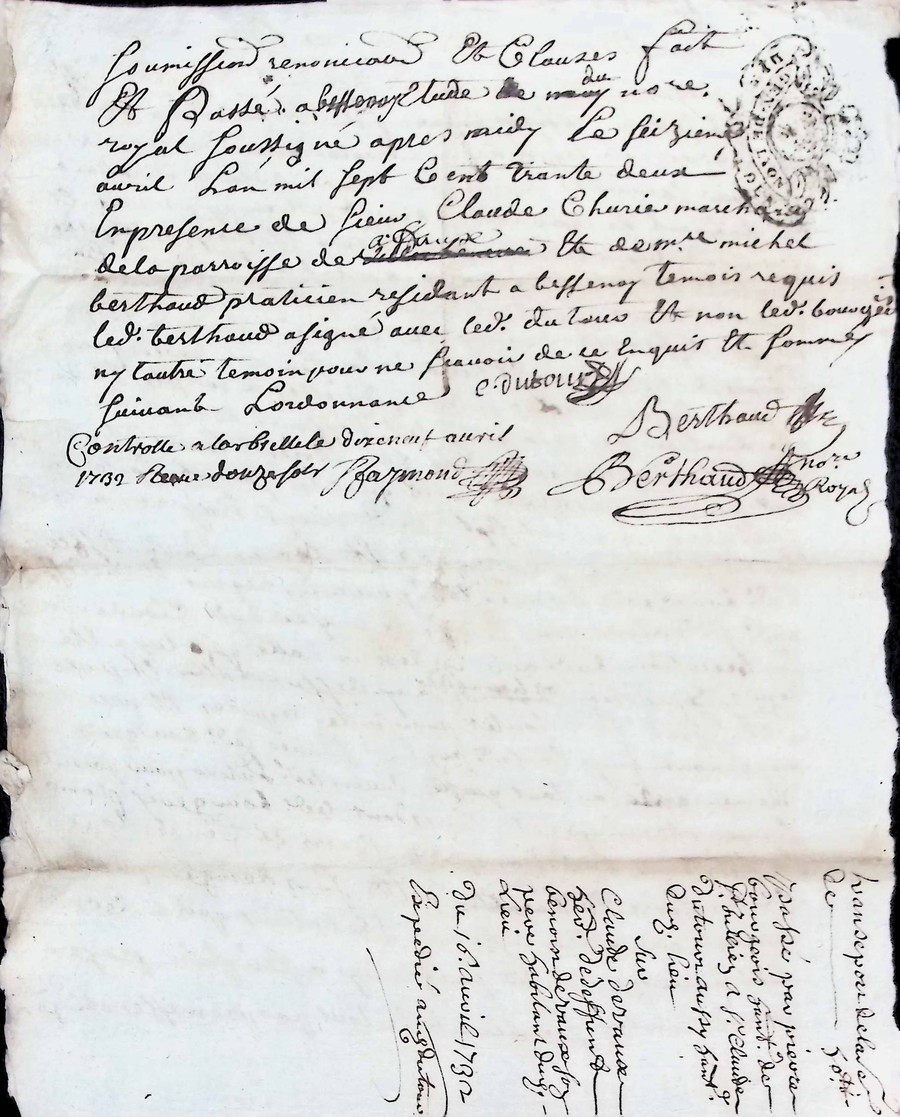 soumissions renonciaons Et Clauses fait
Et Passé a bessenay Etude du moy nore.
royal soussigné apres midy Le seizieme
avril Lan mil sept Cent trante deux
En presence de sieur Claude Churie marchand
de la parroisse de Et de mtre michel
berthaud praticien residant a bessenay temois requis
led. berthaud a signé avec led. dutour Et non led. bourgeois
ny lautre temoin pour ne scavoir de ce Enquis Et sommes
suivant Lordonnance C dutour
Berthaud
Controlle a larbresle le dizeneuf avril
1732 Receu douze sols Raymond
Berthaud nore
Royal
transport de la so.
de
passé par pierre
bourgeois hant. de
a s. Claude
dutour aussy hant.
dud. lieu
sur
Claude devaux
feu
benoit devaux son
pere habitant dud.
Lieu
du 16. avril 1732
Expedié aud. dutour